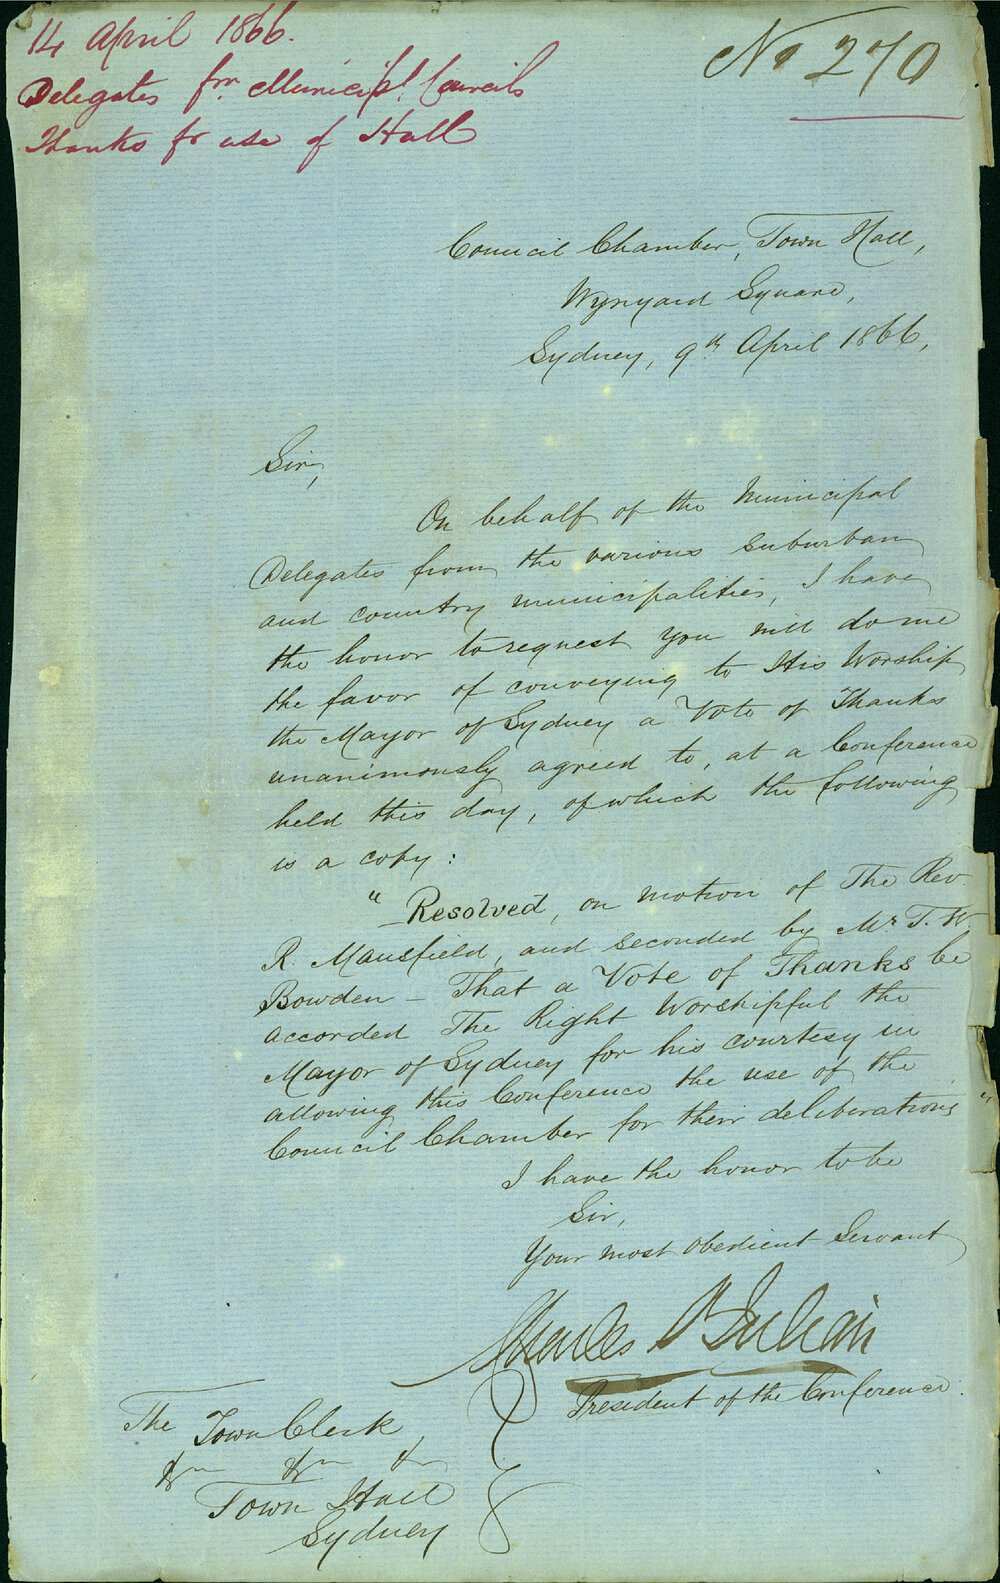 14 April 1866.
No 270
Delegates frm Municipl. Councils
Thanks fr use of Hall
Council Chamber, Town Hall,
Wynyard Square,
Sydney, 9th April 1866,
Sir,
On behalf of the Municipal
Delegates from the various suburban
and country municipalities, I have
the honor to request you will do me
the favor of conveying to His Worship
the Mayor of Sydney a Vote of Thanks
unanimously agreed to, at a Conference
held this day, of which the following
is a copy:
"Resolved, on motion of The Rev.
R. Mansfield, and seconded by Mr. T. W.
Bowden – That a Vote of Thanks be
accorded The Right Worshipful the
Mayor of Sydney for his courtesy in
allowing this Conference the use of the
Council Chamber for their deliberations"
I have the honor to be
Sir,
Your most obedient Servant
Charles
President of the Conference.
The Town Clerk
&c &c &c
Town Hall
Sydney